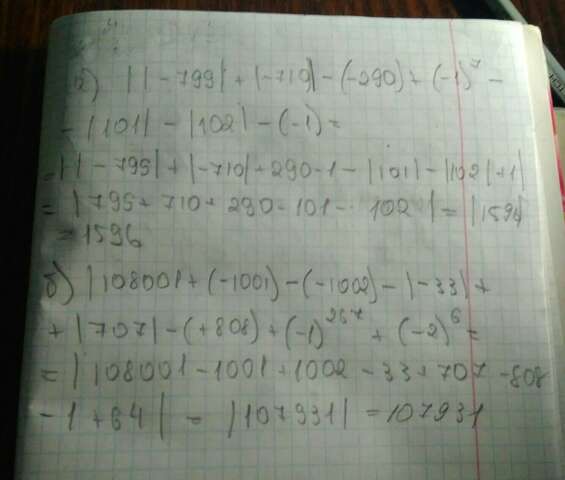 а) ||-799| + |-710| - (-290) + (-1)⁷ -
- |101| - |102| - (-1) =
= ||-799| + |-710| + 290 - 1 - |101| - |102| + 1|
= |799 + 710 + 290 - 101 - 102| = |1596|
= 1596
б) |108001 + (-1001) - (-1002) - |-33| +
+ |707| - (+808) + (-1)²⁶⁷ + (-2)⁶ =
= |108001 - 1001 + 1002 - 33 + 707 - 808
- 1 + 64| = |107931| = 107931